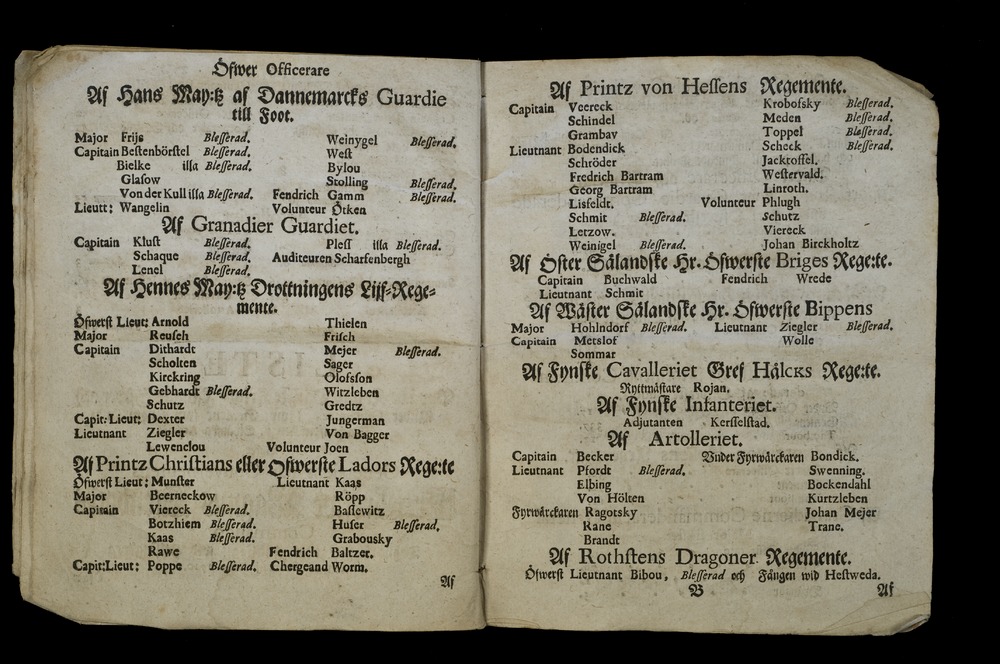 Öfwer Officerare
Af Hans May:tz af Dannemarcks Guardie
till Foot.
Major Frijs Blesserad. Weinygel Blesserad.
Capitain Bestenbörstel Blesserad. West
Bielke illa Blesserad. Bylou
Glasow Stolling Blesserad.
Von der Kull illa Blesserad. Fendrich Gamm Blesserad.
Lieutt: Wangelin Volunteur Ötken
Af Granadier Guardiet.
Capitain Klust Blesserad. Pless illa Blesserad.
Schaque Blesserad. Auditeuren Scharfenbergh
Lenel Blesserad.
Af Hennes May:tz Drottningens Lijf-Rege-
mente.
Öfwerst Lieut: Arnold Thielen
Major Reusch Frisch
Capitain Dithardt Mejer Blesserad.
Scholten Sager
Kirckring Olofsson
Gebhardt Blesserad. Witzleben
Schutz Gredtz
Capit: Lieut: Dexter Jungerman
Lieutnant Ziegler Von Bagger
Lewenclou Volunteur Joen
Af Printz Christians eller Öfwerste Ladors Rege:te
Öfwerst Lieut: Munster Lieutnant Kaas
Major Beerneckow Röpp
Capitain Viereck Blesserad. Bassewitz
Botzhiem Blesserad. Huser Blesserad.
Kaas Blesserad. Grabousky
Rawe Fendrich Baltzer.
Capit:Lieut: Poppe Blesserad. Chergeand Worm.
Af
Af Printz von Hessens Regemente.
Capitain Veereck Krobofsky Blesserad.
Schindel Meden Blesserad.
Grambav Toppel Blesserad.
Lieutnant Bodendick Scheck Blesserad.
Schröder Jacktoffel.
Fredrich Bartram Westervald.
Georg Bartram Linroth.
Lisfeldt. Volunteur Phlugh
Schmit Blesserad. Schutz
Letzow. Viereck
Weinigel Blesserad. Johan Birckholtz
Af Öster Sälandske Hr. Öfwerste Briges Rege:te.
Capitain Buchwald Fendrich Wrede
Lieutnant Schmit
Af Wäster Sälandske Hr. Öfwerste Bippens
Major Hohlndorf Blesserad. Lieutnant Ziegler Blesserad.
Capitain Metslof Wolle
Sommar
Af Fynske Cavalleriet Gref Hälcks Rege:te.
Ryttmästare Rojan.
Af Fynske Infanteriet.
Adjutanten Kersselstad.
Af Artolleriet.
Capitain Becker Vnder Fyrwärckaren Bondick.
Lieutnant Pfordt Blesserad. Swenning.
Elbing Bockendahl
Von Hölten Kurtzleben
Fyrwärckaren Ragotsky Johan Mejer
Rane Trane.
Brandt
Af Rothstens Dragoner Regemente.
Öfwerst Lieutnant Bibou, Blesserad och Fängen wid Hestweda.
B Af